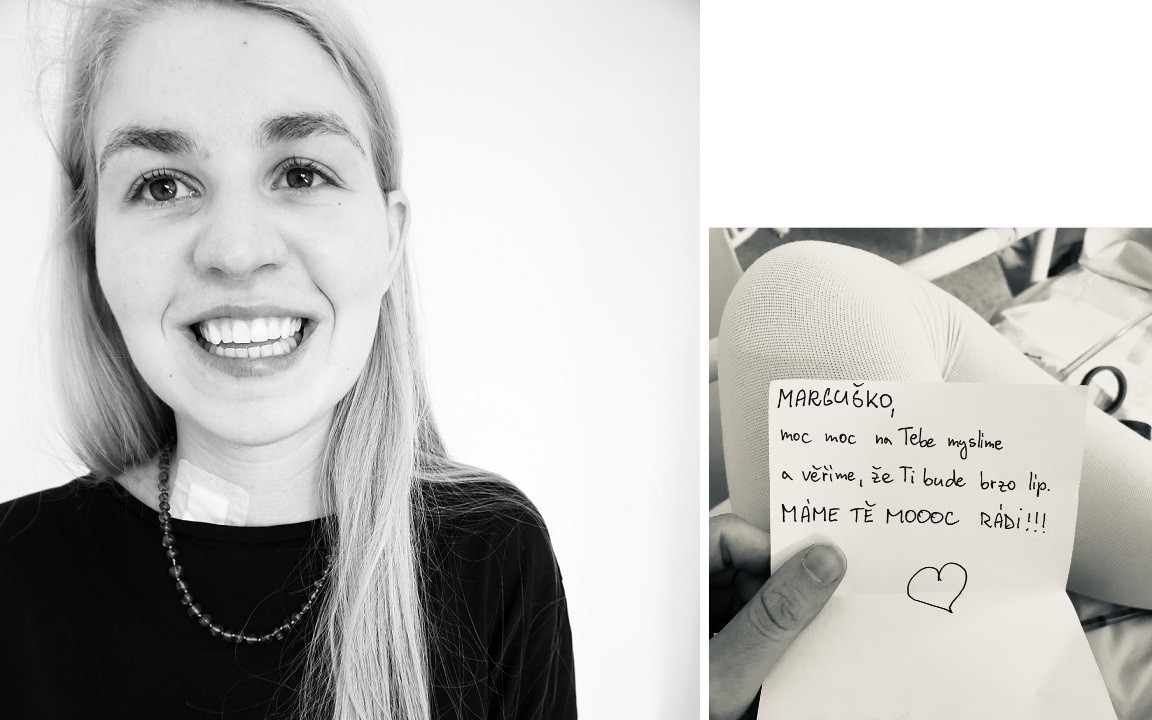 MARGUŠKO,
moc moc na Tebe myslíme
a věříme, že Ti bude brzo líp.
MÁME TĚ MOOOC RÁDI!!!